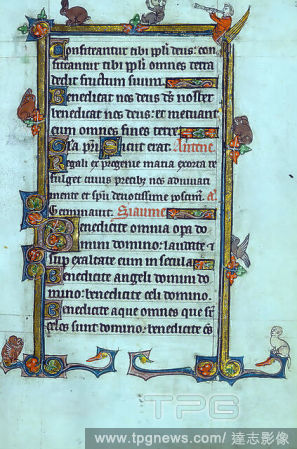 Confiteantur tibi ppli deus: con
fiteantur tibi ppli omnes terra
dedit fructum suum.
Benedicat nos deus ds noster
benedicat nos deus: et metuant
eum omnes fines terre
Gla pri Sicut erat. Antene
Regali ex progenie maria exorta re
fulget cuius precibz nos adiuuari
mente et spu deuotissime poscim.
Geminaut. Siaume
Benedicite omnia opa do
mini domino: laudate
sup exaltate eum in secula
Benedicite angeli domini do
mino: benedicite celi domino.
Benedicite aque omnes que sr
celos sunt domino: benedicite
TPG
www.tpgnews.com/ 達志影像